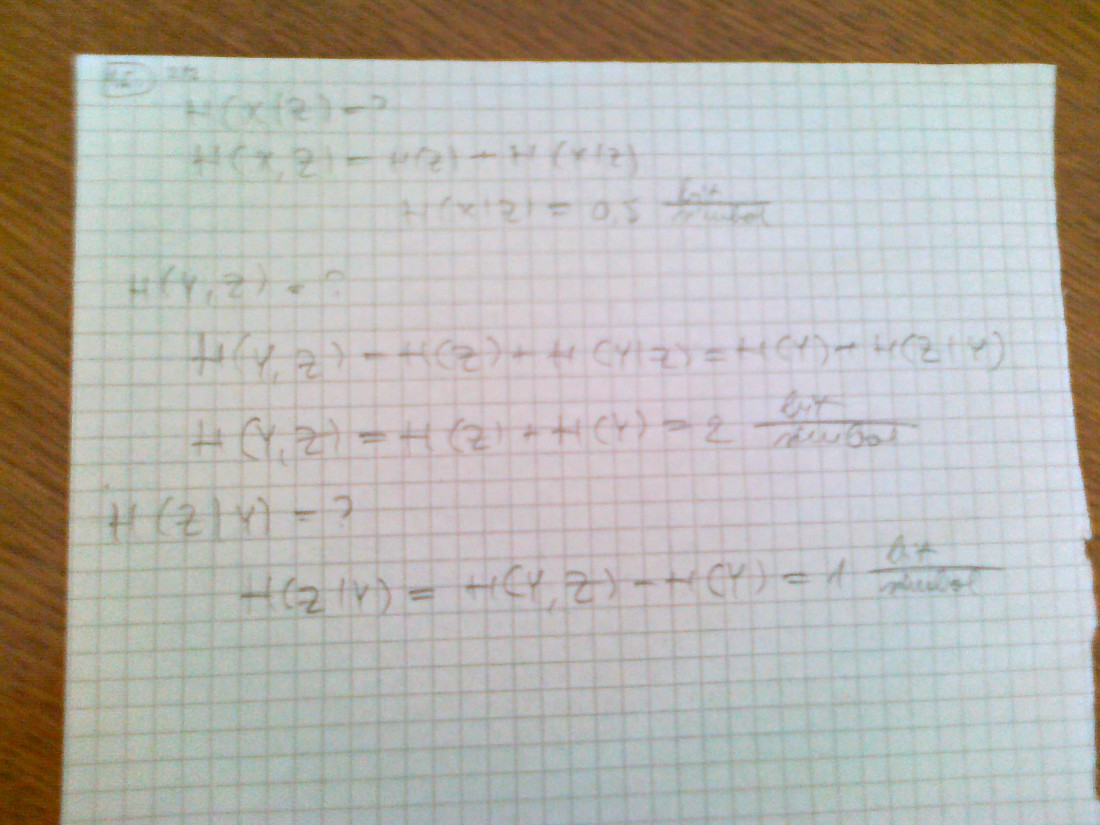 H(X|Z) = ?
H(X,Z) = H(Z) + H(X|Z)
H(X|Z) = 0,5 bit/simbol
H(Y,Z) = ?
H(Y,Z) = H(Z) + H(Y|Z) = H(Y) + H(Z|Y)
H(Y,Z) = H(Z) + H(Y) = 2 bit/simbol
H(Z|Y) = ?
H(Z|Y) = H(Y,Z) - H(Y) = 1 bit/simbol